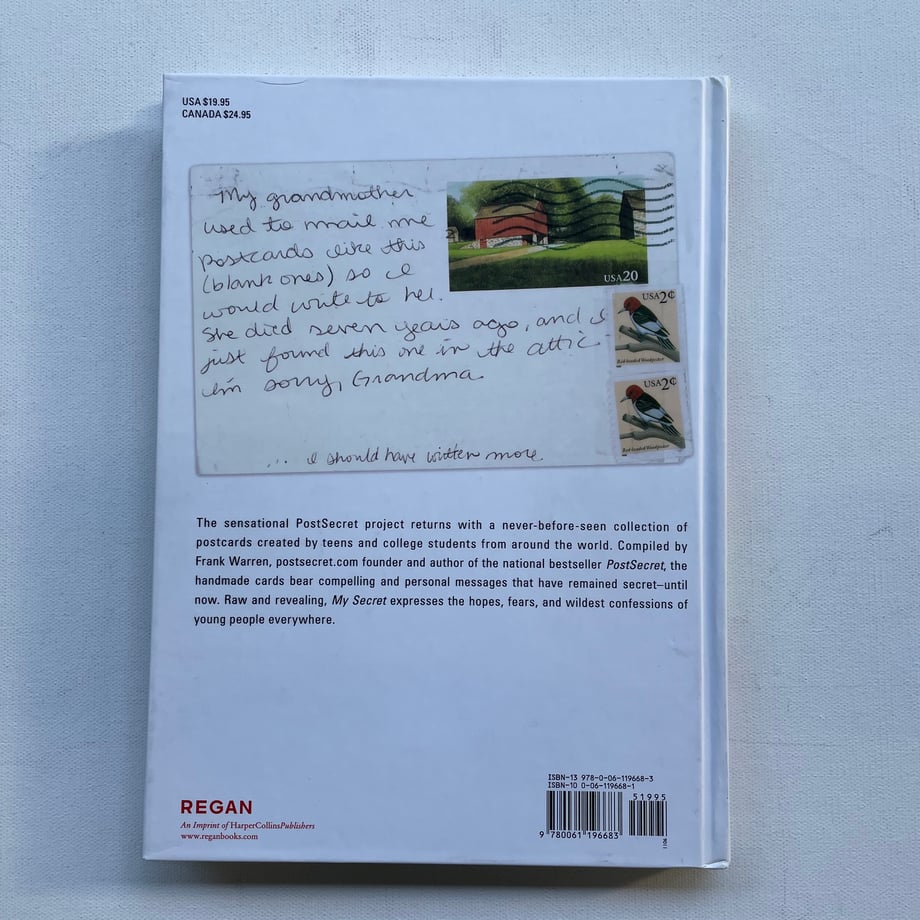 USA $19.95
CANADA $24.95
My grandmother
used to mail me
postcards like this
(blank ones) so I
would write to her.
She died seven years ago, and I
just found this one in the attic.
I'm sorry, Grandma
... I should have written more.
USA20
USA 2¢
Red-headed Woodpecker
USA 2¢
Red-headed Woodpecker
The sensational PostSecret project returns with a never-before-seen collection of
postcards created by teens and college students from around the world. Compiled by
Frank Warren, postsecret.com founder and author of the national bestseller PostSecret, the
handmade cards bear compelling and personal messages that have remained secret—until
now. Raw and revealing, My Secret expresses the hopes, fears, and wildest confessions of
young people everywhere.
REGAN
An Imprint of HarperCollinsPublishers
www.reganbooks.com
ISBN-13 978-0-06-119668-3
ISBN-10 0-06-119668-1
51995
9 780061 196683